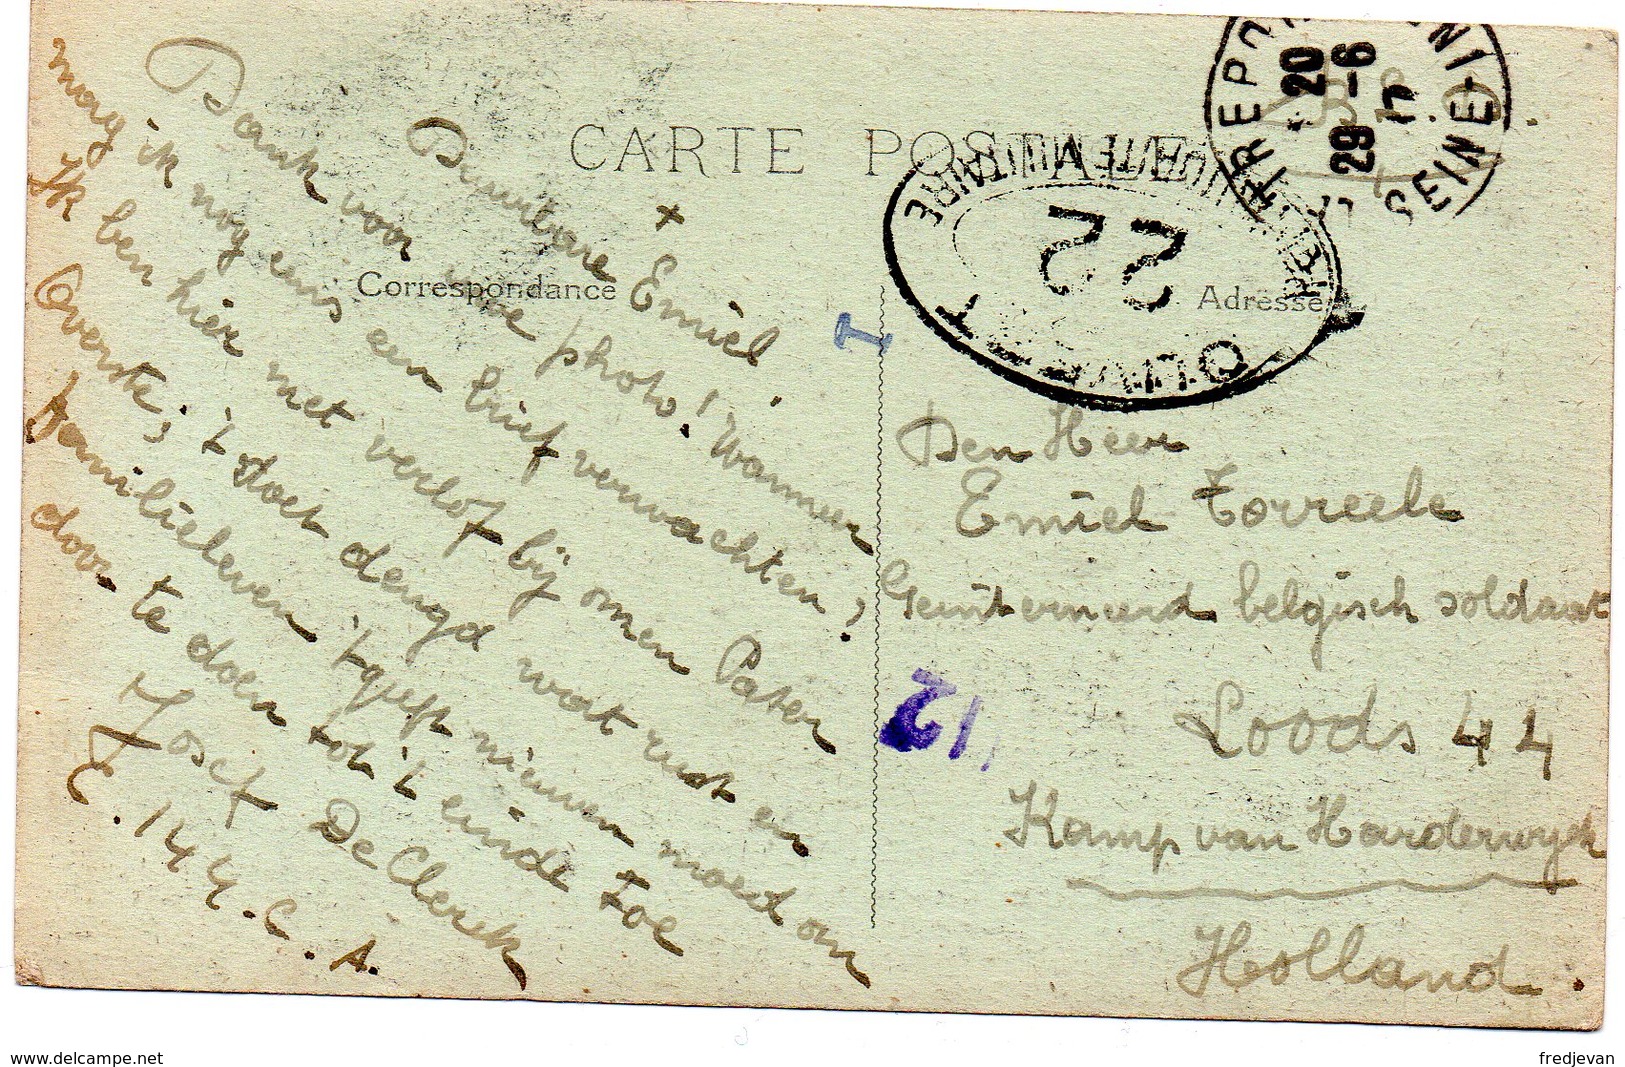 CARTE POSTALE
Correspondance
Adresse
+
Dierbare Emiel.
Dank voor uwe photo! Wanneer
mag ik nog eens een brief verwachten?
Ik ben hier met verlof bij onzen Pater
Overste; 't doet deugd wat rust en
familieleven; 't geeft nieuwen moed om
door te doen tot 't einde toe
Josef De Clerck
E. 144. C. A.
Den Heer
Emiel Torreele
Geïnterneerd belgisch soldaat
Loods 44
Kamp van Harderwyck
Holland.
SEINE
20
29-6
17
OUVERT
MILITAIRE
22
T
12
www.delcampe.net
fredjevan